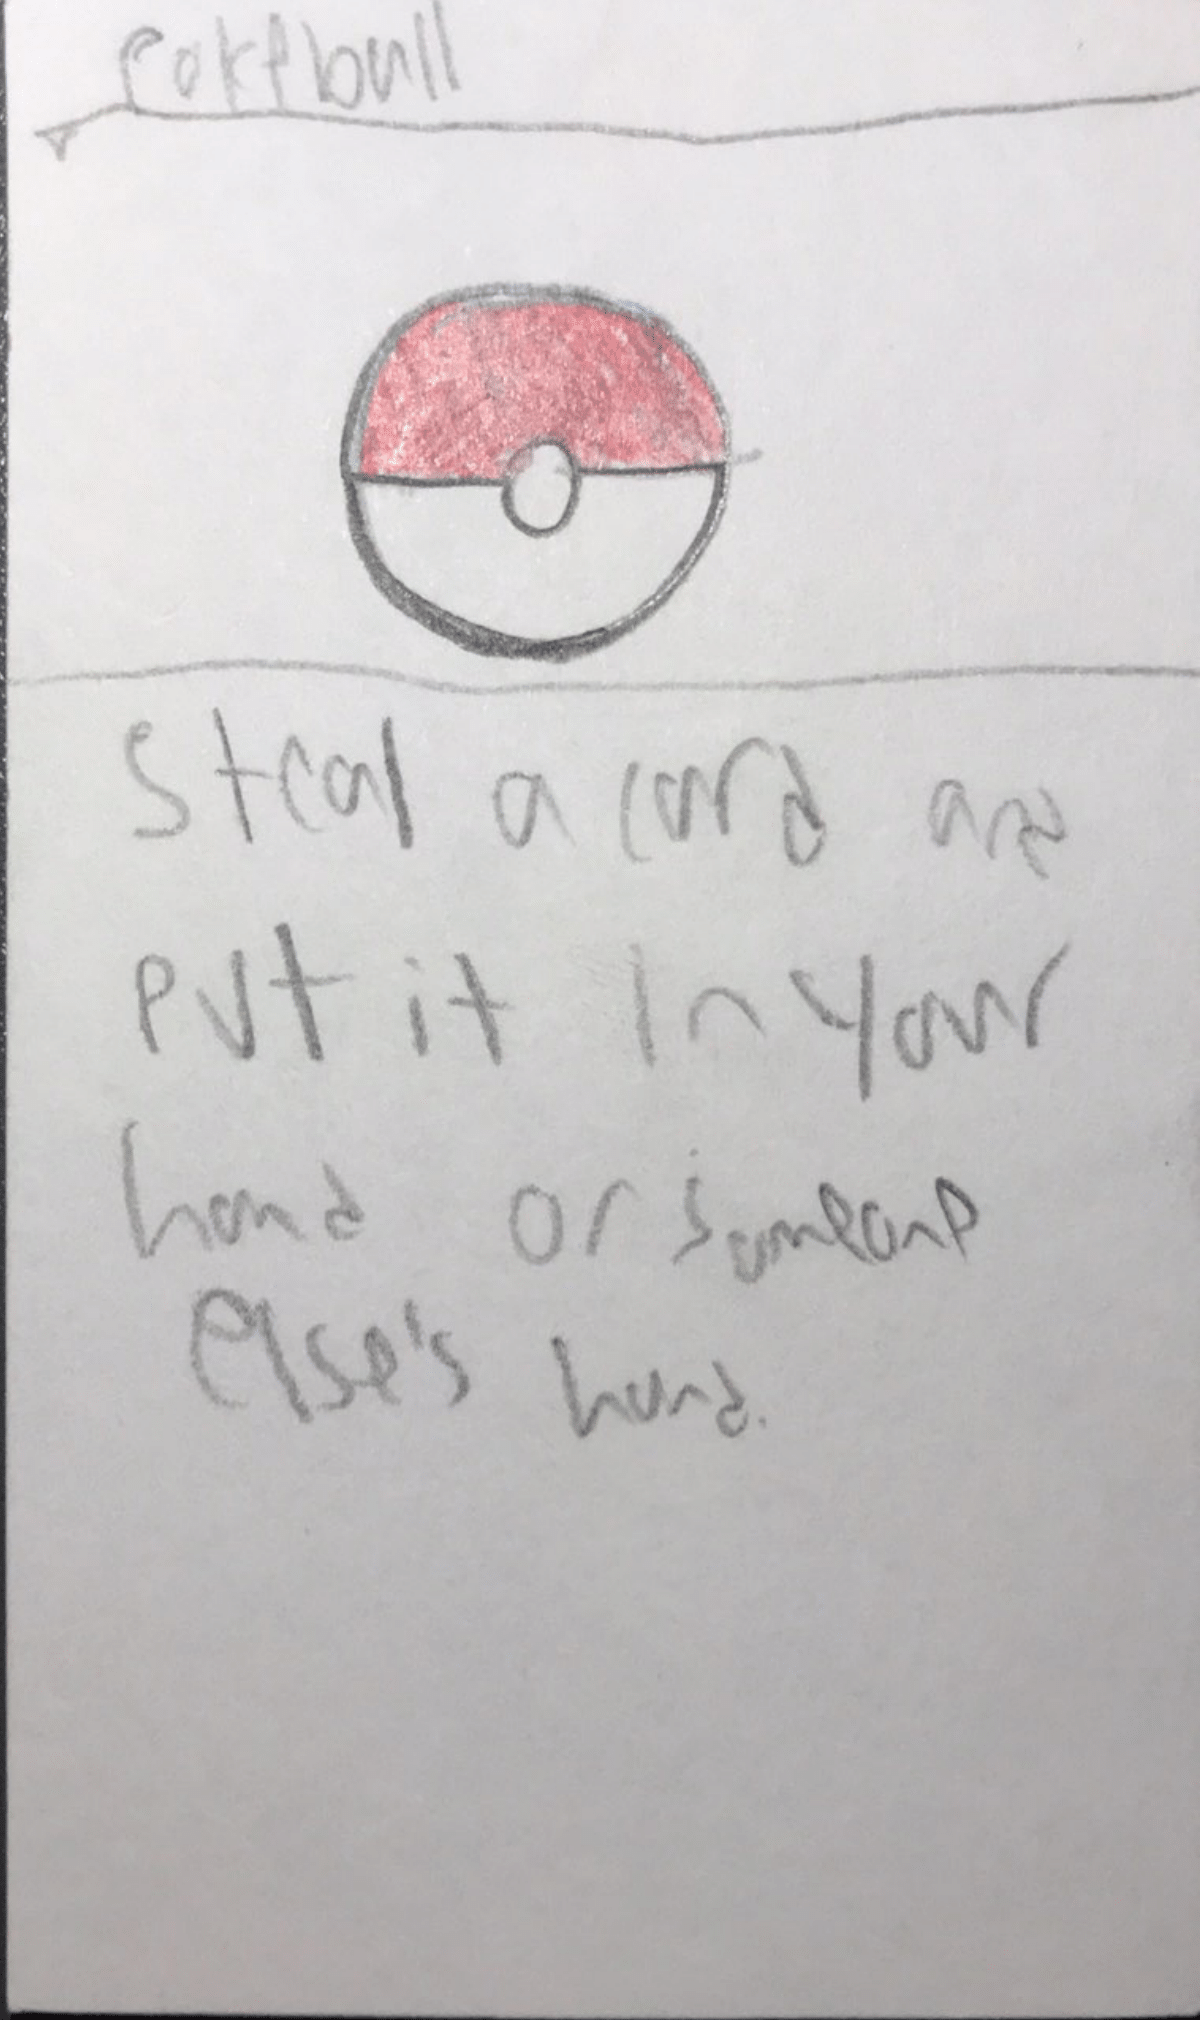 Pokeball
Steal a card and
put it in your
hand or someone
Else's hand.